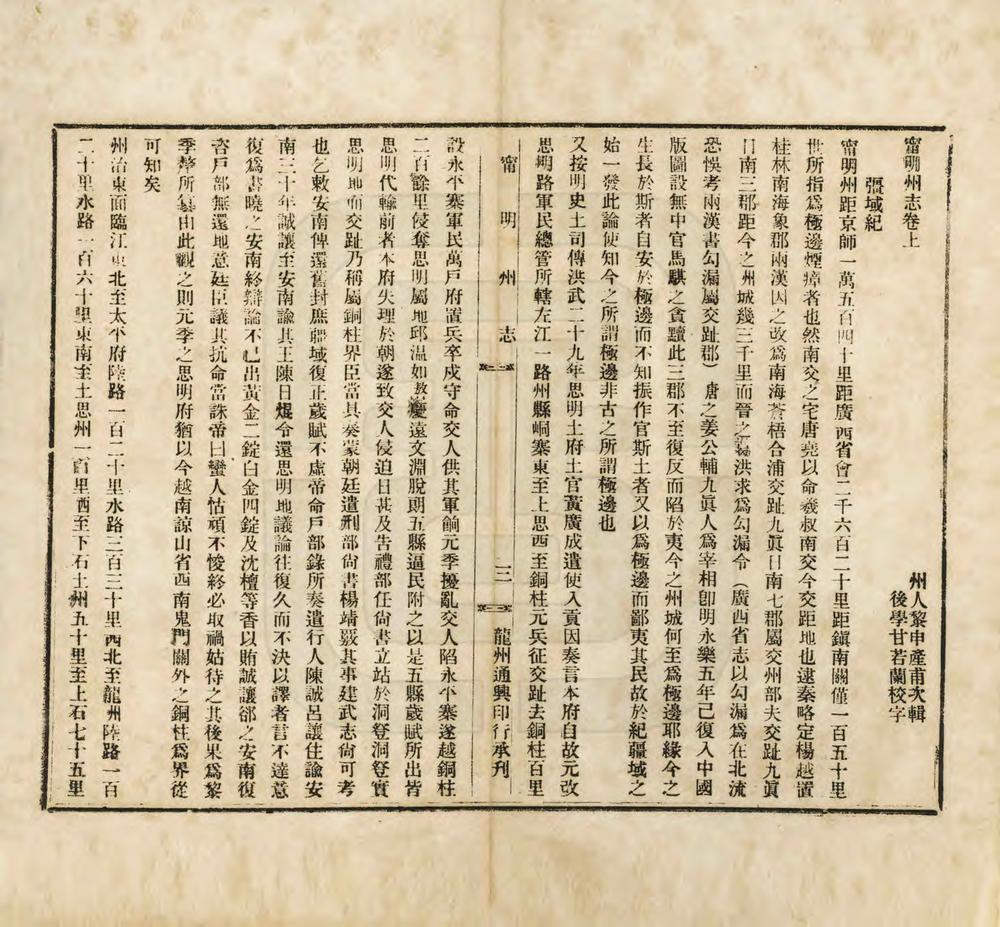 甯明州志卷上
州人黎申產甫次輯
後學甘若蘭校字
疆域紀
甯明州距京師一萬五百四十里距廣西省會二千六百二十里距鎭南關僅一百五十里
世所指爲極邊煙瘴者也然南交之宅唐堯以命羲叔南交今交距地也逮秦略定楊越置
桂林南海象郡兩漢因之改爲南海蒼梧合浦交趾九眞日南七郡屬交州部夫交趾九眞
日南三郡距今之州城幾三千里而晉之葛洪求爲勾漏令（廣西省志以勾漏爲在北流
恐悞考兩漢書勾漏屬交趾郡）唐之姜公輔九眞人爲宰相卽明永樂五年已復入中國
版圖設無中官馬騏之貪黷此三郡不至復反而陷於夷今之州城何至爲極邊耶緣今之
生長於斯者自安於極邊而不知振作官斯土者又以爲極邊而鄙夷其民故於紀疆域之
始一發此論使知今之所謂極邊非古之所謂極邊也
又按明史土司傳洪武二十九年思明土府土官黃廣成遣使入貢因奏言本府自故元改
思明路軍民總管所轄左江一路州縣峒寨東至上思西至銅柱元兵征交趾去銅柱百里
甯明州志
三
龍州通興印行承刋
設永平寨軍民萬戶府置兵卒戍守命交人供其軍餉元季擾亂交人陷永平寨遂越銅柱
二百餘里侵奪思明屬地邱温如嶅慶遠文淵脫朗五縣逼民附之以是五縣歲賦所出皆
思明代輸前者本府失理於朝遂致交人侵迫日甚及告禮部任尙書立站於洞登洞登實
思明地而交趾乃稱屬銅柱界臣當具奏蒙朝廷遣刑部尙書楊靖覈其事建武志尙可考
也乞敕安南俾還舊封庶疆域復正歲賦不虛帝命戶部錄所奏遣行人陳誠呂讓往諭安
南三十年誠讓至安南諭其王陳日焜令還思明地議論往復久而不決以譯者言不達意
復爲書曉之安南終辯論不已出黃金二錠白金四錠及沈檀等香以賄誠讓郤之安南復
咨戶部無還地意廷臣議其抗命當誅帝曰蠻人怙頑不悛終必取禍姑待之其後果爲黎
季犛所簒由此觀之則元季之思明府猶以今越南諒山省西南鬼門關外之銅柱爲界從
可知矣
州治東面臨江東北至太平府陸路一百二十里水路三百三十里西北至龍州陸路一百
二十里水路一百六十里東南至土思州一百里西至下石土州五十里至上石七十五里